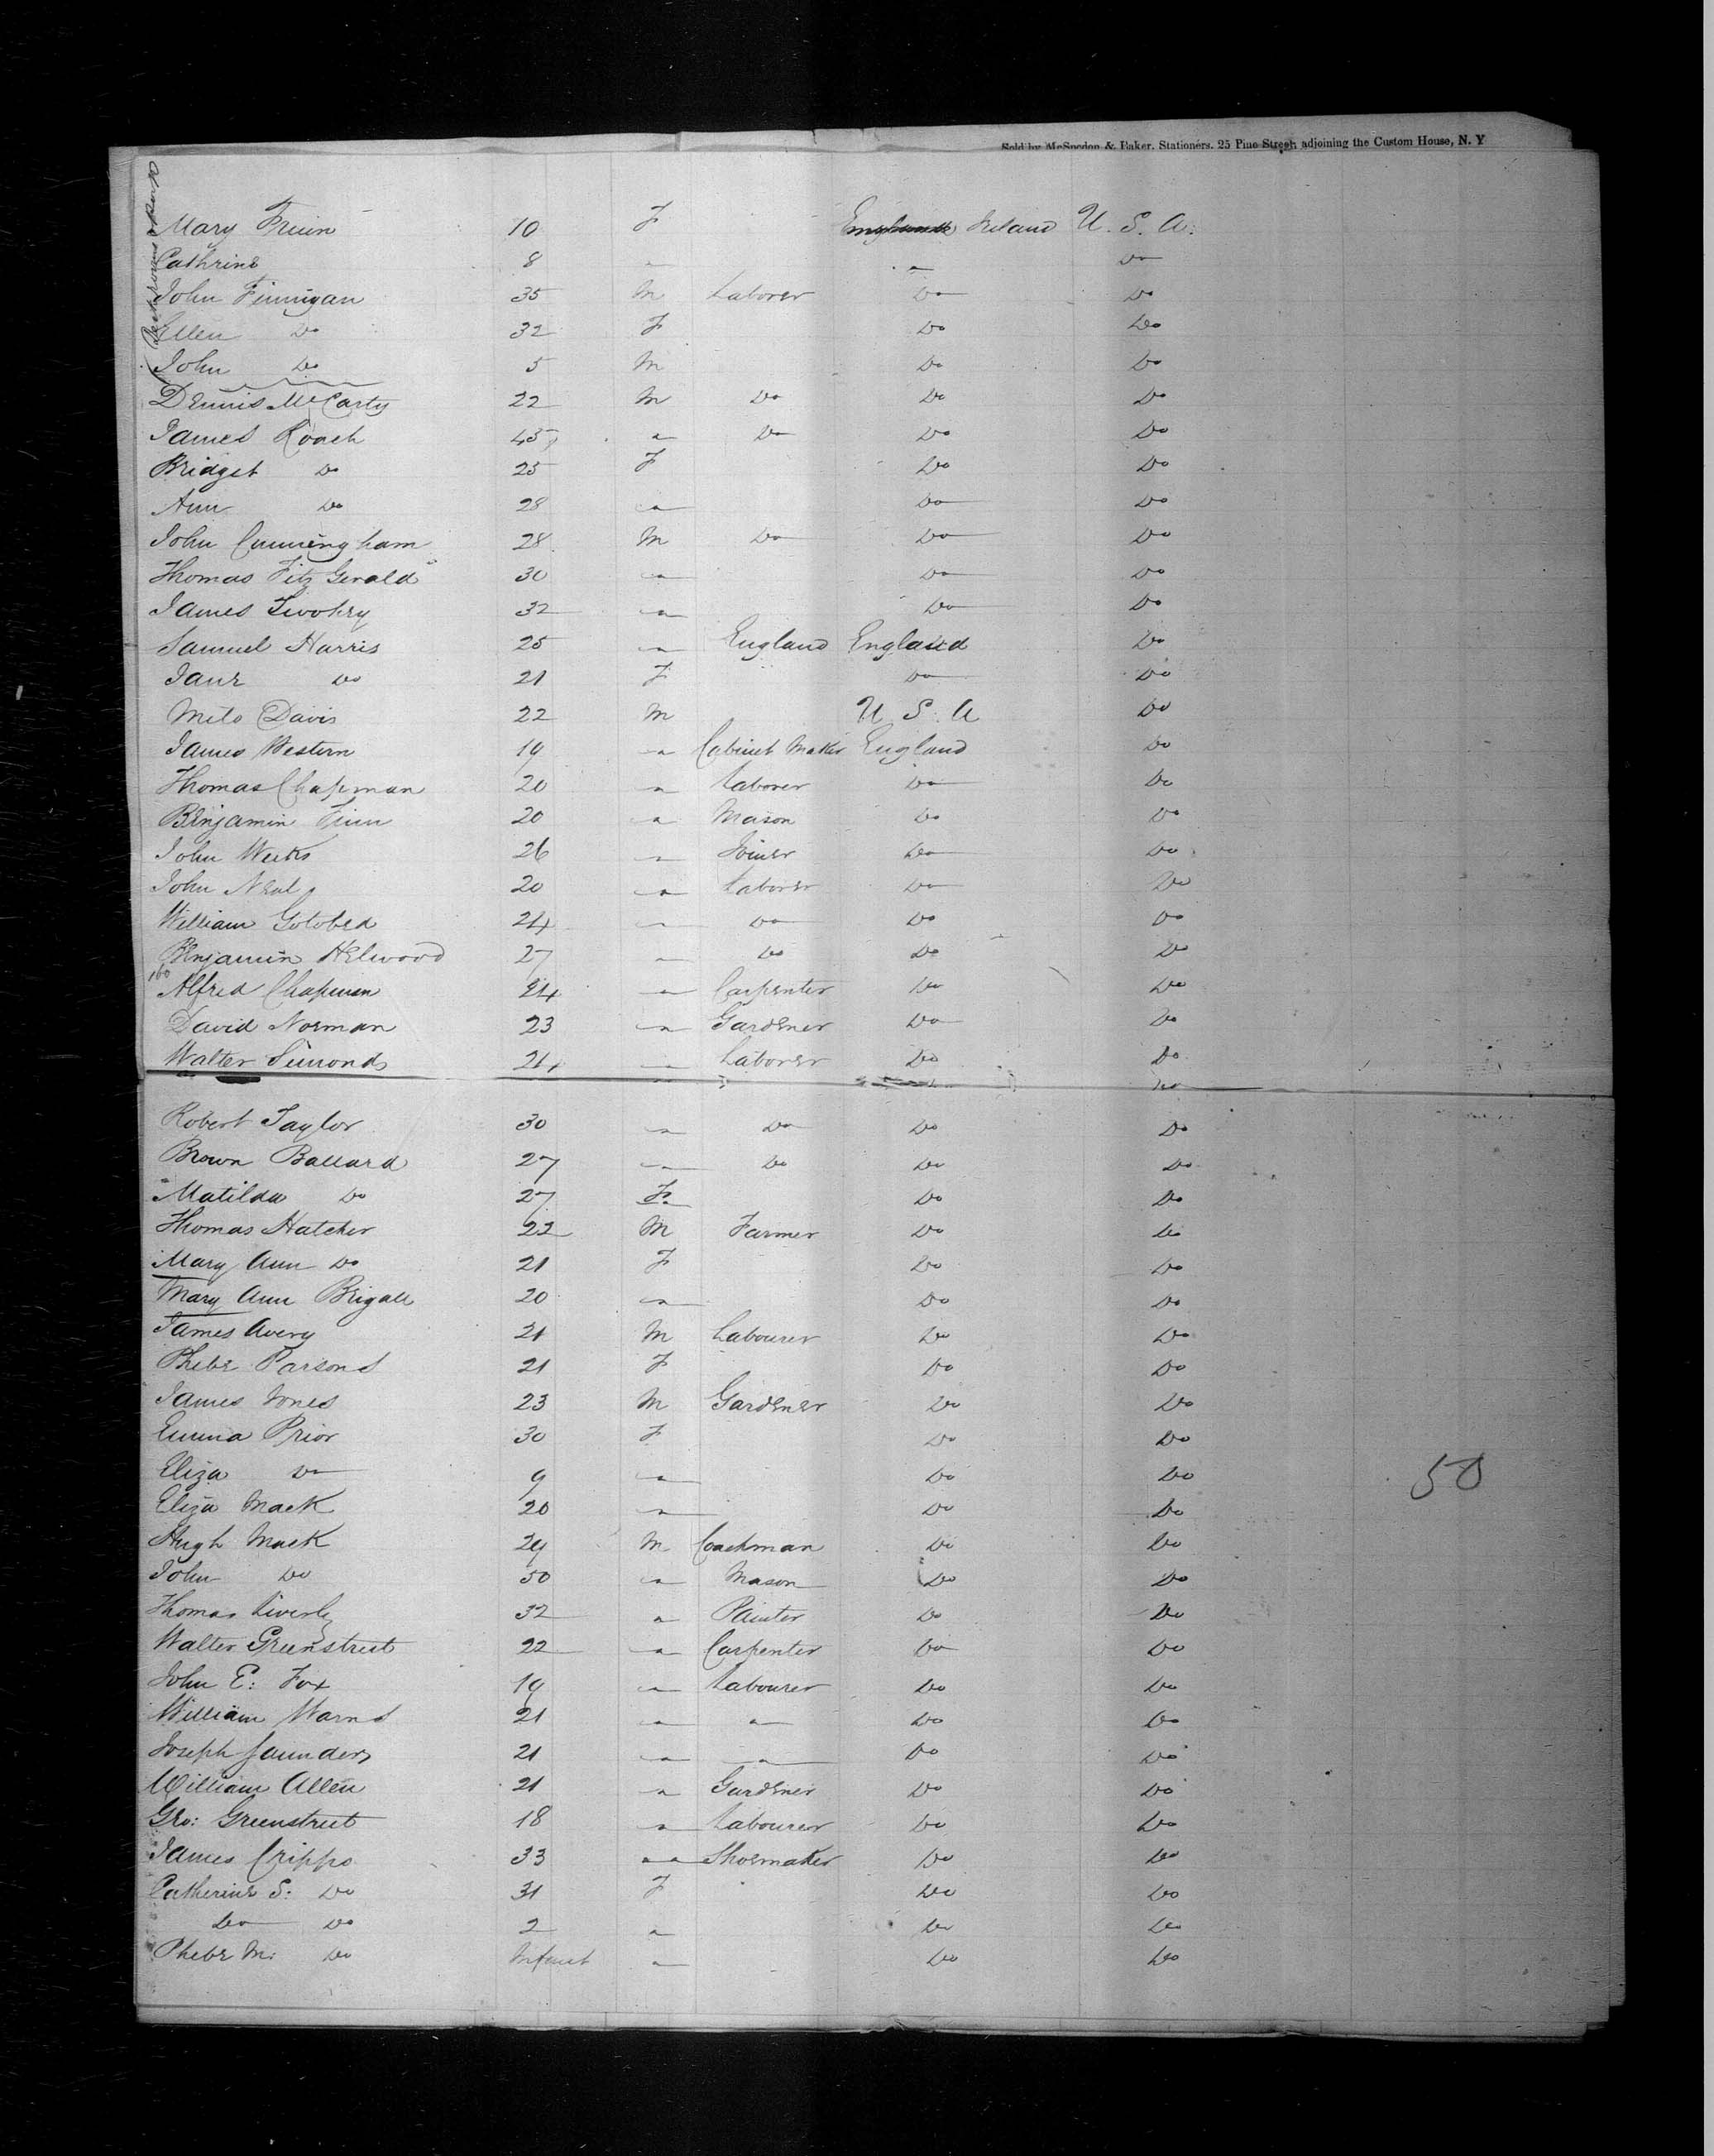 Sold by McSpedon & Baker, Stationers, 25 Pine Street, adjoining the Custom House, N. Y
Mary 10 F Ireland U. S. A.
Cathrine 8 " " Do
John Finnigan 35 M Laborer Do Do
Ellen Do 32 F Do Do
John Do 5 M Do Do
Dennis McCarty 22 M Do Do Do
James Roach 45 " Do Do Do
Bridget Do 25 F Do Do
Ann Do 28 " Do Do
John Cunningham 28 M Do Do Do
Thomas Fitz Gerald 30 " Do Do
James Twohey 32 " Do Do
Samuel Harris 25 " England England Do
Jane Do 21 F Do Do
Milo Davis 22 M U. S. A Do
James Western 19 " Cabinet Maker England Do
Thomas Chapman 20 " Laborer Do Do
Benjamin Finn 20 " Mason Do Do
John Weeks 26 " Joiner Do Do
John Neal 20 " Laborer Do Do
William Gotobed 24 " Do Do Do
Benjamin Helwood 27 " Do Do Do
160
Alfred Chapman 24 " Carpenter Do Do
David Norman 23 " Gardener Do Do
Walter Simonds 24 " Laborer Do Do
Robert Taylor 30 " Do Do Do
Brown Ballard 27 " Do Do Do
Matilda Do 27 F Do Do
Thomas Hatcher 22 M Farmer Do Do
Mary Ann Do 21 F Do Do
Mary Ann Brigall 20 " Do Do
James Avery 21 M Labourer Do Do
Phebe Parsons 21 F Do Do
James Jones 23 M Gardener Do Do
Emma Prior 30 F Do Do
Eliza Do 9 " Do Do
50
Eliza Mack 20 " Do Do
Hugh Mack 29 M Coachman Do Do
John Do 50 " Mason Do Do
Thomas Liverly 32 " Painter Do Do
Walter Greenstreet 22 " Carpenter Do Do
John E: Fox 19 " Labourer Do Do
William Warns 21 " " Do Do
Joseph Saunders 21 " " Do Do
William Allen 21 " Gardener Do Do
Geo: Greenstreet 18 " Labourer Do Do
James Cripps 33 " " Shoemaker Do Do
Catherine S: Do 31 F Do Do
Do Do 2 " Do Do
Phebe M: Do Infant " Do Do